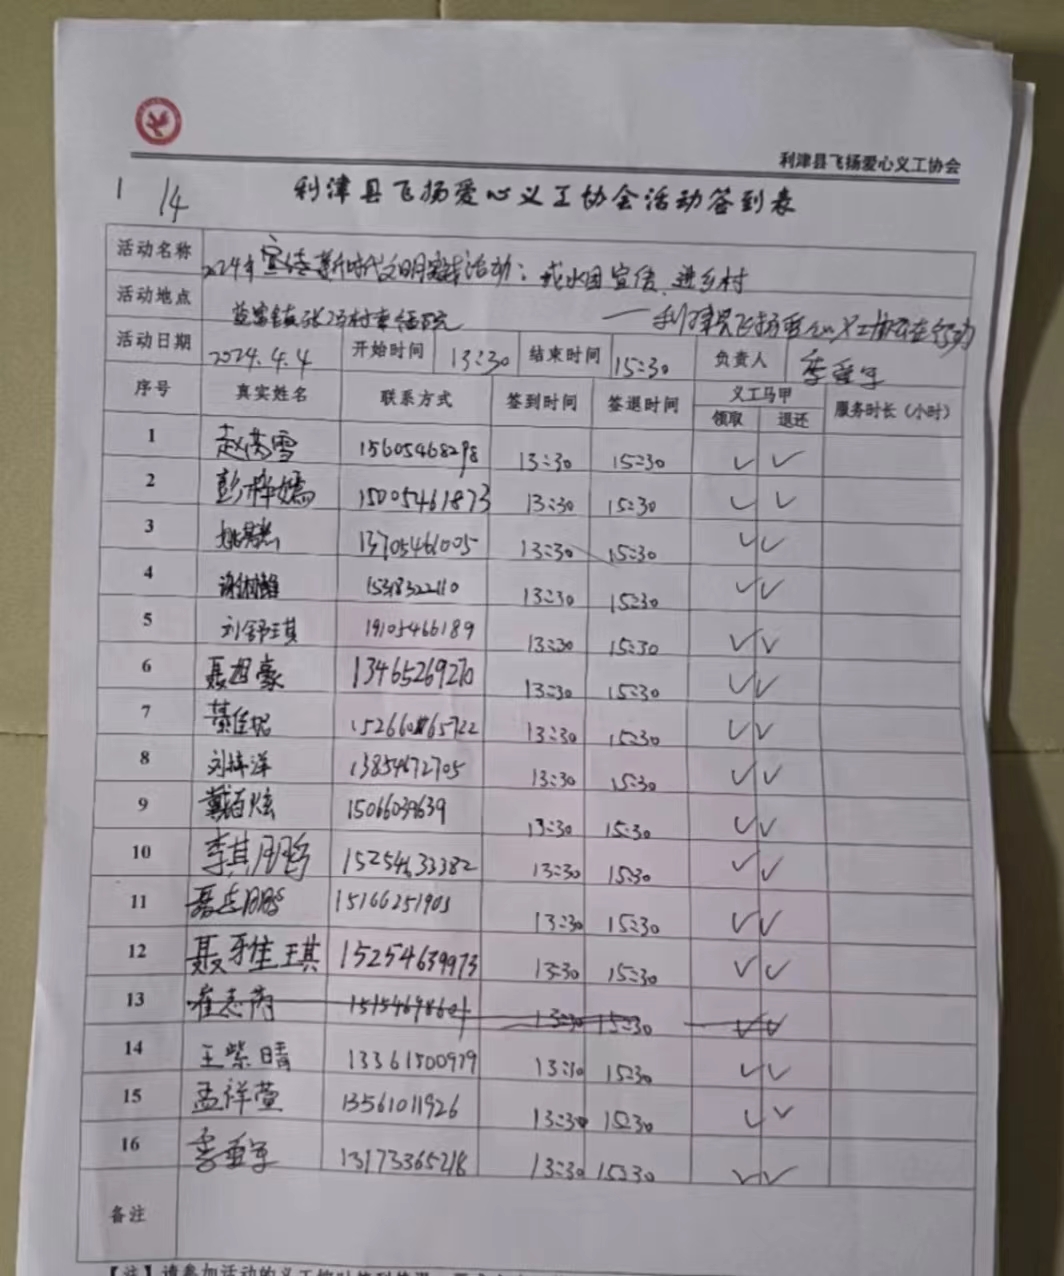 利津县飞扬爱心义工协会
1 14
利津县飞扬爱心义工协会活动签到表
活动名称 2024年宣传新时代文明实践活动：戒水园宣传进乡村
活动地点 ——利津县飞扬爱心义工协会在行动
活动日期 2024.4.4 开始时间 13:30 结束时间 15:30 负责人 李亚军
序号 真实姓名 联系方式 签到时间 签退时间 义工马甲 服务时长（小时）
领取 退还
1 15605468298 13:30 15:30 ✓ ✓
2 彭梓嫣 15005461873 13:30 15:30 ✓ ✓
3 13705461005 13:30 15:30 ✓ ✓
4 15318322110 13:30 15:30 ✓ ✓
5 刘舒琪 19105466189 13:30 15:30 ✓ ✓
6 聂旭豪 13465269270 13:30 15:30 ✓ ✓
7 13:30 15:30 ✓ ✓
8 刘梓洋 13854672705 13:30 15:30 ✓ ✓
9 15066039639 13:30 15:30 ✓ ✓
10 李其鹏 15254633382 13:30 15:30 ✓ ✓
11 15166251903 13:30 15:30 ✓ ✓
12 聂雅琪 15254639973 13:30 15:30 ✓ ✓
13 崔志芮 15154698601 13:30 15:30 ✓ ✓
14 王紫晴 13361500979 13:30 15:30 ✓ ✓
15 孟祥萱 13561011926 13:30 15:30 ✓ ✓
16 李亚军 13173365218 13:30 15:30 ✓ ✓
备注